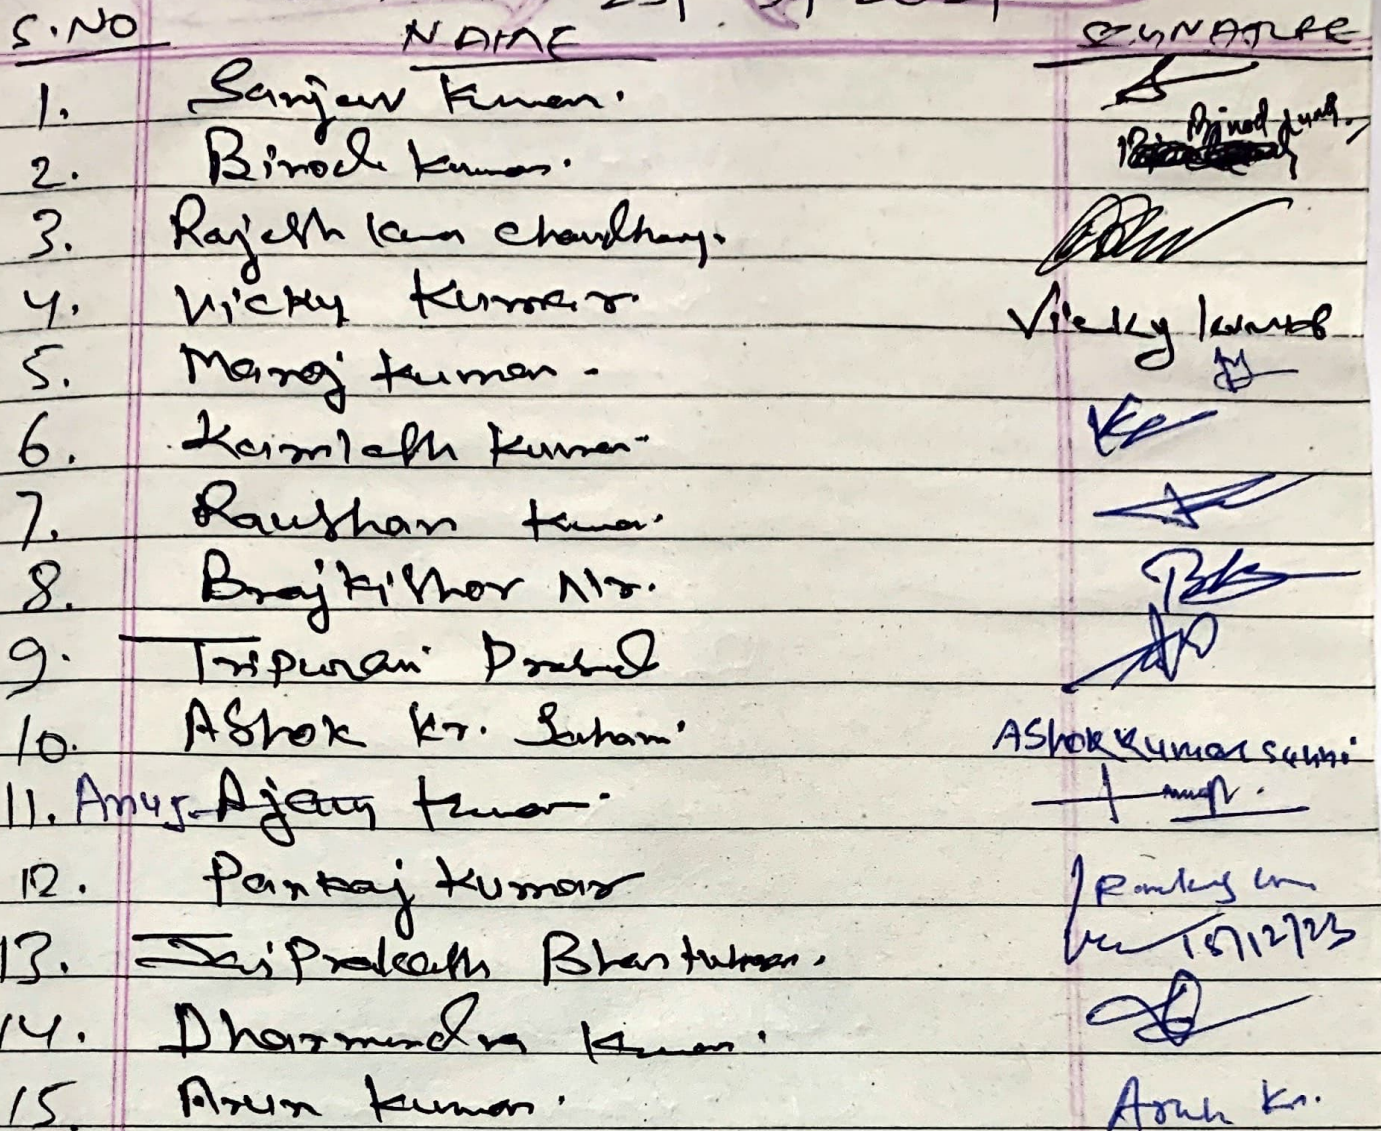 S.NO NAME SIGNATURE
1. Sanjeev Kumar.
2. Binod Kumar. Binod Kumar
3. Rajesh Kumar Chaudhary.
4. Vicky Kumar. Vicky kumar
5. Manoj Kumar -
6. Kamlesh Kumar
7. Raushan Kumar.
8. Brajkishor Nr.
9. Tripurari Prasad
10. AShok Kr. Sahani AShok Kumar Sahni
11. Anuj Ajay Kumar.
12. Pankaj Kumar Pankaj Kum
13. Jai Prakash 15/12/23
14. Dharmendra Kumar.
15. Arun Kumar. Arun Kr.